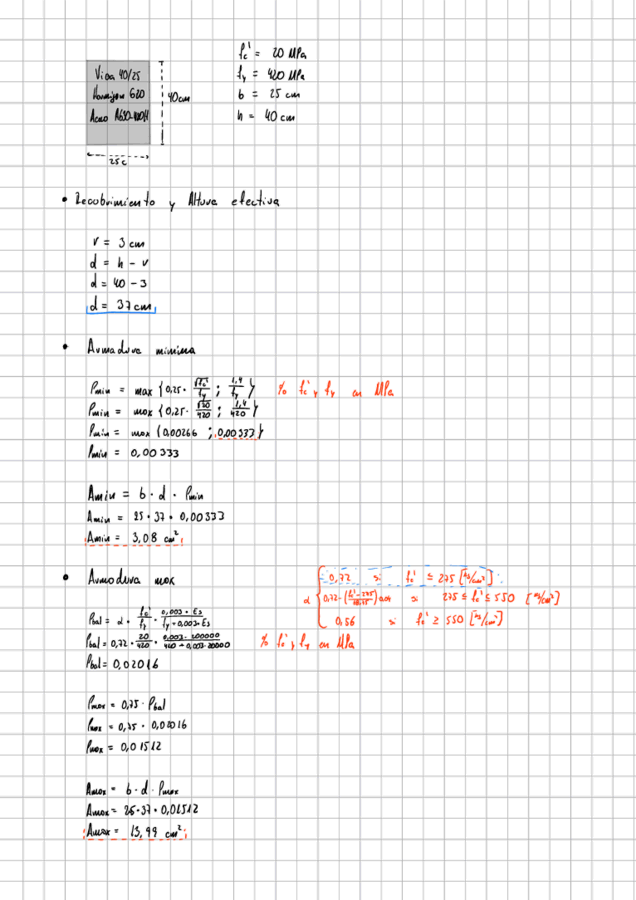 f'c = 20 MPa
Viga 40/25
fy = 420 MPa
Hormigon G20
b = 25 cm
40cm
Acero A630-420H
h = 40 cm
25c
• Recobrimiento y Altura efectiva
r = 3 cm
d = h - r
d = 40 - 3
d = 37 cm
• Armadura minima
ρmin = max {0,25 · √fc' / fy ; 1,4 / fy} % fc' y fy en MPa
ρmin = max {0,25 · √20 / 420 ; 1,4 / 420}
ρmin = max {0,00266 ; 0,00333}
ρmin = 0,00333
Amin = b · d · ρmin
Amin = 25 · 37 · 0,00333
Amin = 3,08 cm²
• Armadura max
0,72 si fc' ≤ 275 [kg/cm²]
α 0,72 - si 275 ≤ fc' ≤ 550 [kg/cm²]
0,56 si fc' ≥ 550 [kg/cm²]
ρbal = α · fc' / fy · 0,003 · Es / fy + 0,003 · Es
ρbal = 0,72 · 20 / 420 · 0,003 · 200000 / 420 + 0,003 · 20000 % fc' y fy en MPa
ρbal = 0,02016
ρmax = 0,75 · ρbal
ρmax = 0,75 · 0,02016
ρmax = 0,01512
Amax = b · d · ρmax
Amax = 25 · 37 · 0,01512
Amax = 13,99 cm²